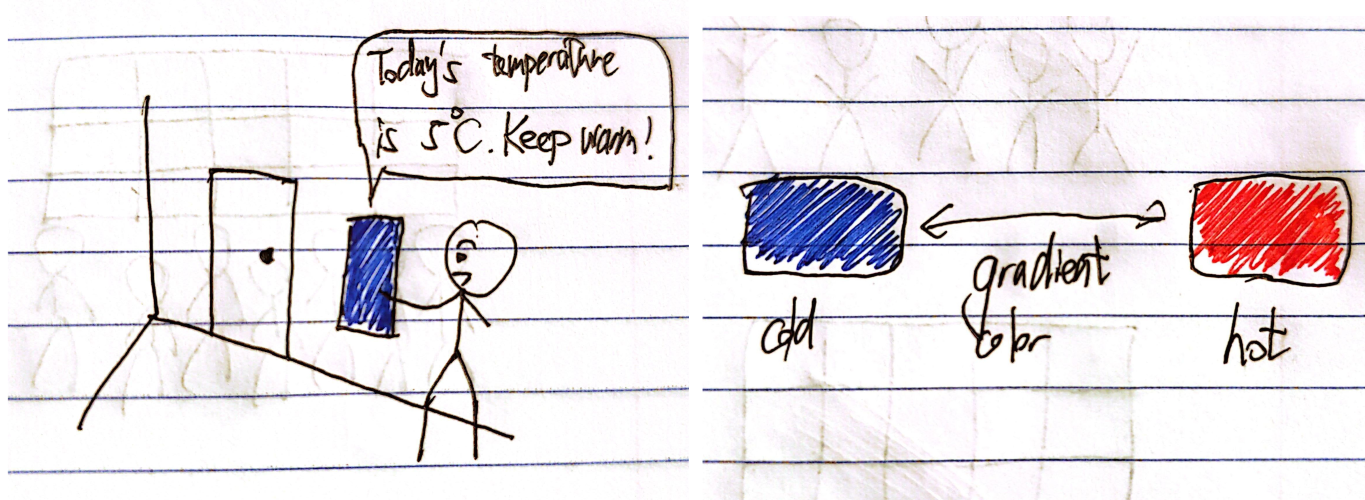 Today's temperature
is 5°C. Keep warm!
gradient
color
cold
hot